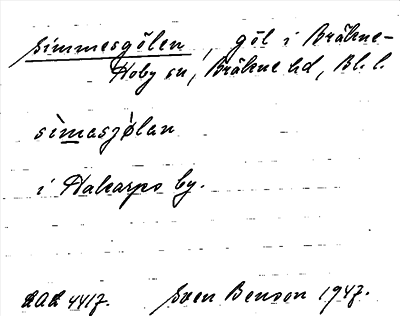 Simmesgölen, göl i Bräkne-
Hoby sn, Bräkne hd, Bl. l.
simasjølan
i Halcarps by.
LAL 4417. Sven Benson 1947.